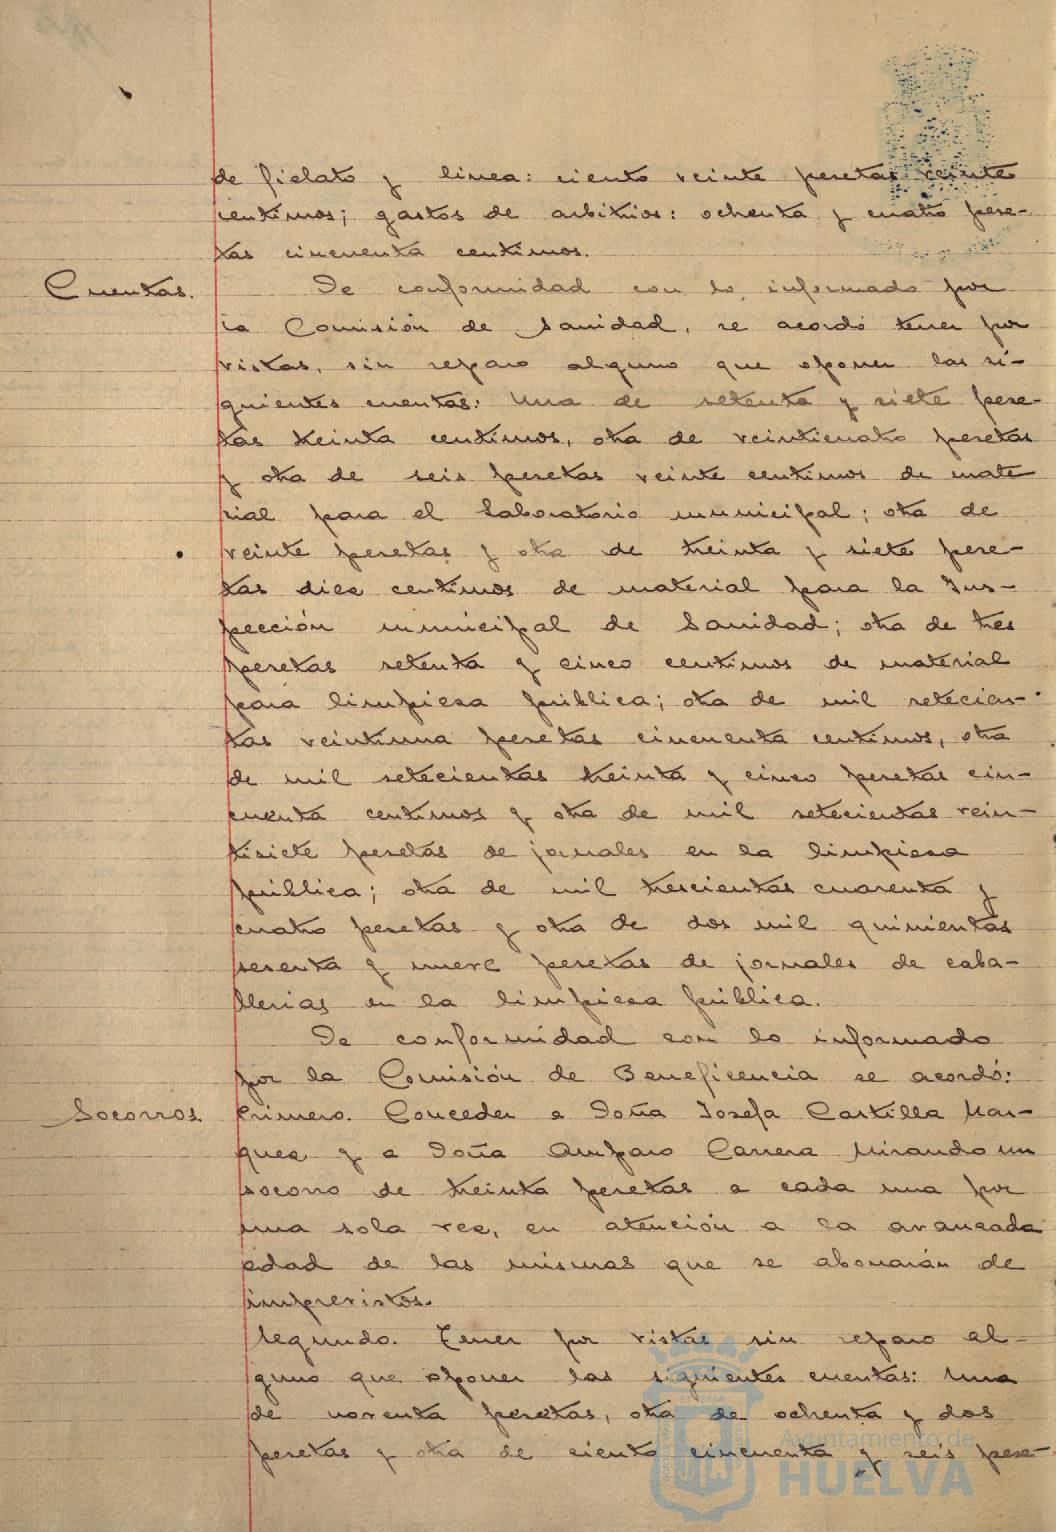 de fielato y linea: ciento veinte pesetas veinte
centimos; gastos de arbitrios: ochenta y cuatro pese-
tas cincuenta centimos.
Cuentas.
De conformidad con lo informado por
la Comisión de Sanidad, se acordó tener por
vistas, sin reparo alguno que oponer las si-
guientes cuentas: Una de setenta y siete pese-
tas treinta centimos, otra de veinticuatro pesetas
y otra de seis pesetas veinte centimos de mate
rial para el Laboratorio municipal; otra de
veinte pesetas y otra de treinta y siete pese-
tas diez centimos de material para la Ins-
pección municipal de Sanidad; otra de tres
pesetas setenta y cinco centimos de material
para limpieza pública; otra de mil setecien-
tas veintiuna pesetas cincuenta centimos, otra
de mil setecientas treinta y cinco pesetas cin-
cuenta centimos y otra de mil setecientas vein-
tisiete pesetas de jornales en la limpieza
pública; otra de mil trescientas cuarenta y
cuatro pesetas y otra de dos mil quinientas
sesenta y nueve pesetas de jornales de caba-
llerias en la limpieza pública.
De conformidad con lo informado
por la Comisión de Beneficencia se acordó:
Socorros
Primero. Conceder a Doña Josefa Castilla Mar-
quez y a Doña Amparo Carrera Mirando un
socorro de treinta pesetas a cada una por
una sola vez, en atención a la avanzada
edad de las mismas que se abonarán de
imprevistos.
Segundo. Tener por vistas sin reparo al-
guno que oponer las siguientes cuentas: Una
de noventa pesetas, otra de ochenta y dos
pesetas y otra de ciento cincuenta y seis pese-
Ayuntamiento de
HUELVA